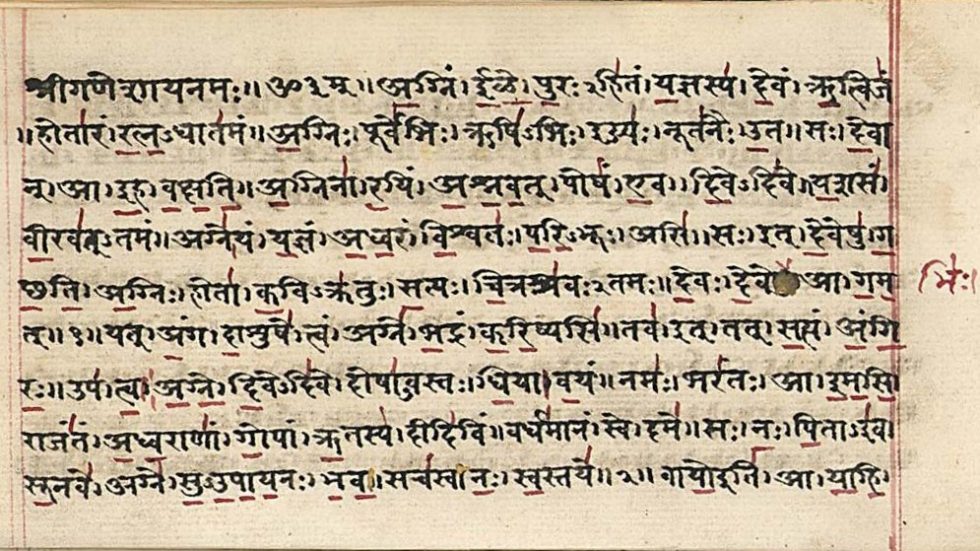 श्रीगणेशायनमः॥ॐ३म्॥अ॒ग्निं।ई॒ळे॒।पु॒रःऽहि॑तं।य॒ज्ञस्य॑।दे॒वं।ऋ॒त्विजं॑
॥होता॑रं।र॒त्न॒ऽधात॑मं॥अ॒ग्निः।पूर्वे॑भिः।ऋषि॑ऽभिः।ईड्यः॑।नूत॑नैः।उ॒त॥सः।दे॒वा
न्।आ।इ॒ह।व॒क्ष॒ति॒॥अ॒ग्निना॑।र॒यिं।अ॒श्न॒व॒त्।पोषं॑।ए॒व।दि॒वेऽदि॑वे॥य॒शसं॑
वी॒रव॑त्ऽतमं॥अग्ने॑।यं।य॒ज्ञं।अ॒ध्व॒रं।वि॒श्वतः॑।प॒रि॒ऽभूः।असि॑॥सः।इत्।दे॒वेषु॑।ग॒
च्छ॒ति॒।अ॒ग्निः।होता॑।क॒विऽक्र॑तुः।स॒त्यः।चि॒त्रश्र॑वःऽतमः॥दे॒वः।दे॒वे आ।ग॒म॒
त्॥१॥यत्।अं॒ग।दा॒शुषे॑।त्वं।अग्ने॑।भ॒द्रं।क॒रि॒ष्यसि॑॥तव॑।इत्।तत्।स॒त्यं।अं॒गि॒
रः॒॥उप॑।त्वा॒।अ॒ग्ने॒।दि॒वेऽदि॑वे।दोषा॑ऽवस्तः।धि॒या।व॒यं॥नमः॑।भरं॑तः।आ।इ॒म॒सि॒
राजं॑तं।अ॒ध्व॒राणां॑।गो॒पां।ऋ॒तस्य॑।दीदि॑विं॥वर्ध॑मानं।स्वे।दमे॑॥सः।नः॒।पि॒ताऽइ॑व
सू॒नवे॑।अग्ने॑।सु॒ऽउ॒पा॒य॒नः।भ॒व॒॥सच॑स्व।नः॒।स्व॒स्तये॑॥२॥वायो॒इति॑।आ।या॒हि॒
भिः॑।